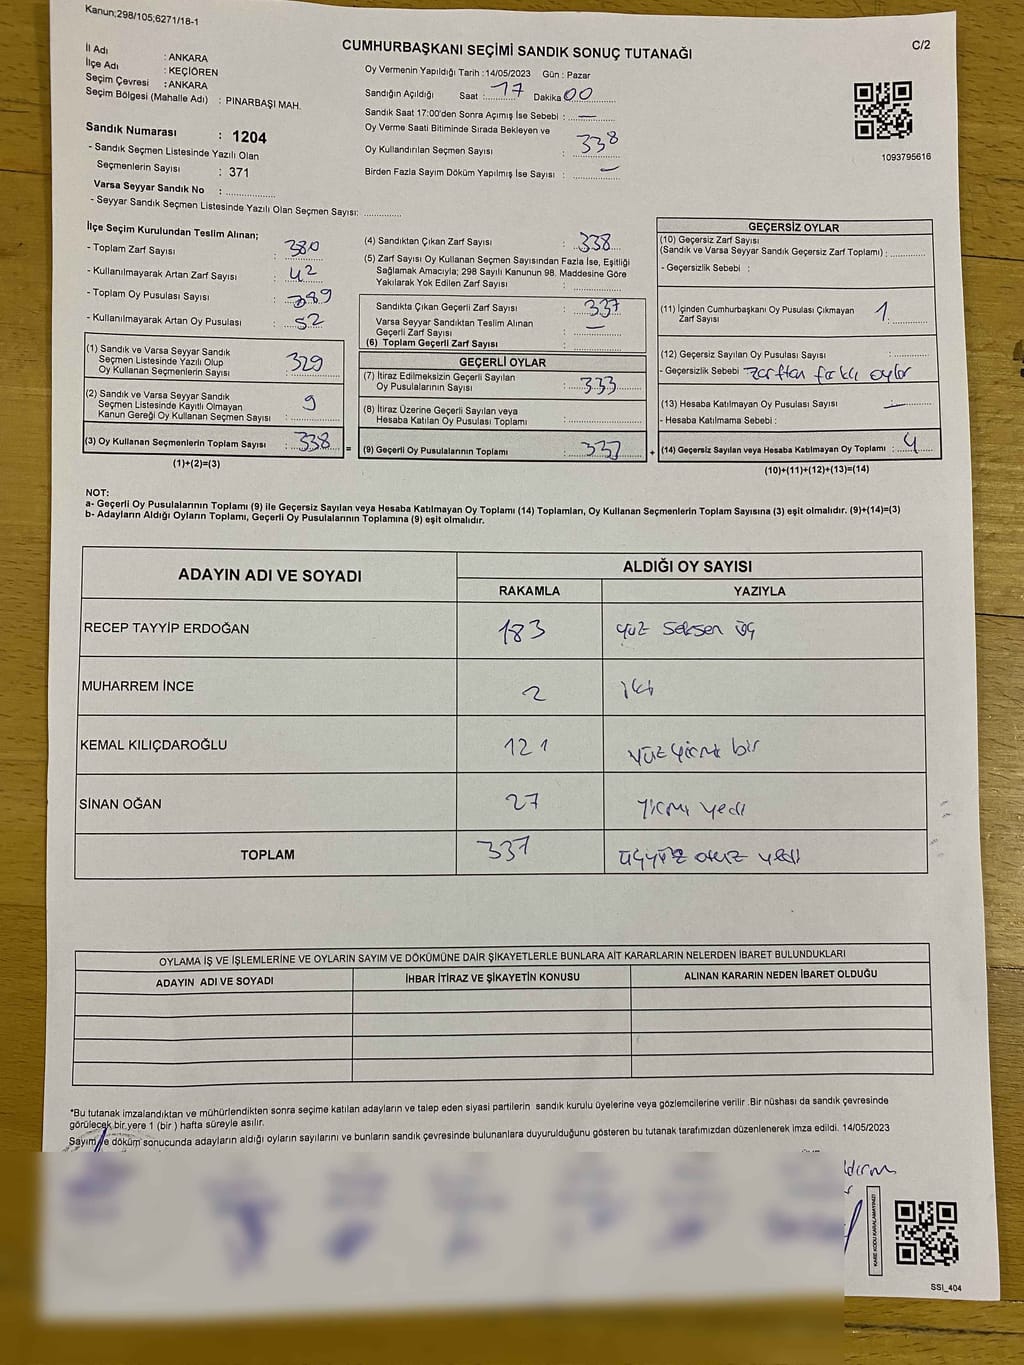 Kanun;298/105;6271/18-1
C/2
CUMHURBAŞKANI SEÇİMİ SANDIK SONUÇ TUTANAĞI
İl Adı : ANKARA
İlçe Adı : KEÇİÖREN
Seçim Çevresi : ANKARA
Seçim Bölgesi (Mahalle Adı) : PINARBAŞI MAH.
Sandık Numarası : 1204
- Sandık Seçmen Listesinde Yazılı Olan
Seçmenlerin Sayısı : 371
Varsa Seyyar Sandık No : ..............
- Seyyar Sandık Seçmen Listesinde Yazılı Olan Seçmen Sayısı: ............
Oy Vermenin Yapıldığı Tarih :14/05/2023 Gün : Pazar
Sandığın Açıldığı Saat : 17 Dakika 00
Sandık Saat 17:00'den Sonra Açımış İse Sebebi : —
Oy Verme Saati Bitiminde Sırada Bekleyen ve
Oy Kullandırılan Seçmen Sayısı : 338
Birden Fazla Sayım Döküm Yapılmış İse Sayısı : —
1093795616
İlçe Seçim Kurulundan Teslim Alınan;
- Toplam Zarf Sayısı : 380
- Kullanılmayarak Artan Zarf Sayısı : 42
- Toplam Oy Pusulası Sayısı : 389
- Kullanılmayarak Artan Oy Pusulası : 52
(1) Sandık ve Varsa Seyyar Sandık
Seçmen Listesinde Yazılı Olup
Oy Kullanan Seçmenlerin Sayısı : 329
(2) Sandık ve Varsa Seyyar Sandık
Seçmen Listesinde Kayıtlı Olmayan
Kanun Gereği Oy Kullanan Seçmen Sayısı : 9
(3) Oy Kullanan Seçmenlerin Toplam Sayısı : 338 =
(1)+(2)=(3)
(4) Sandıktan Çıkan Zarf Sayısı : 338
(5) Zarf Sayısı Oy Kullanan Seçmen Sayısından Fazla İse, Eşitliği
Sağlamak Amacıyla; 298 Sayılı Kanunun 98. Maddesine Göre
Yakılarak Yok Edilen Zarf Sayısı :
Sandıkta Çıkan Geçerli Zarf Sayısı : 337
Varsa Seyyar Sandıktan Teslim Alınan
Geçerli Zarf Sayısı : —
(6) Toplam Geçerli Zarf Sayısı :
GEÇERLİ OYLAR
(7) İtiraz Edilmeksizin Geçerli Sayılan
Oy Pusulalarının Sayısı : 333
(8) İtiraz Üzerine Geçerli Sayılan veya
Hesaba Katılan Oy Pusulası Toplamı :
(9) Geçerli Oy Pusulalarının Toplamı : 337 +
GEÇERSİZ OYLAR
(10) Geçersiz Zarf Sayısı
(Sandık ve Varsa Seyyar Sandık Geçersiz Zarf Toplamı) :
- Geçersizlik Sebebi :
(11) İçinden Cumhurbaşkanı Oy Pusulası Çıkmayan
Zarf Sayısı : 1
(12) Geçersiz Sayılan Oy Pusulası Sayısı :
- Geçersizlik Sebebi zarftan farklı oylar
(13) Hesaba Katılmayan Oy Pusulası Sayısı : —
- Hesaba Katılmama Sebebi :
(14) Geçersiz Sayılan veya Hesaba Katılmayan Oy Toplamı : 4
(10)+(11)+(12)+(13)=(14)
NOT:
a- Geçerli Oy Pusulalarının Toplamı (9) ile Geçersiz Sayılan veya Hesaba Katılmayan Oy Toplamı (14) Toplamları, Oy Kullanan Seçmenlerin Toplam Sayısına (3) eşit olmalıdır. (9)+(14)=(3)
b- Adayların Aldığı Oyların Toplamı, Geçerli Oy Pusulalarının Toplamına (9) eşit olmalıdır.
ADAYIN ADI VE SOYADI
ALDIĞI OY SAYISI
RAKAMLA YAZIYLA
RECEP TAYYİP ERDOĞAN 183 yüz seksen üç
MUHARREM İNCE 2 iki
KEMAL KILIÇDAROĞLU 121 yüz yirmi bir
SİNAN OĞAN 27 yirmi yedi
TOPLAM 337 üçyüz otuz yedi
OYLAMA İŞ VE İŞLEMLERİNE VE OYLARIN SAYIM VE DÖKÜMÜNE DAİR ŞİKAYETLERLE BUNLARA AİT KARARLARIN NELERDEN İBARET BULUNDUKLARI
ADAYIN ADI VE SOYADI İHBAR İTİRAZ VE ŞİKAYETİN KONUSU ALINAN KARARIN NEDEN İBARET OLDUĞU
*Bu tutanak imzalandıktan ve mühürlendikten sonra seçime katılan adayların ve talep eden siyasi partilerin sandık kurulu üyelerine veya gözlemcilerine verilir .Bir nüshası da sandık çevresinde
görülecek bir yere 1 (bir ) hafta süreyle asılır.
Sayım ve döküm sonucunda adayların aldığı oyların sayılarını ve bunların sandık çevresinde bulunanlara duyurulduğunu gösteren bu tutanak tarafımızdan düzenlenerek imza edildi. 14/05/2023
KARE KODU KARALAMAYINIZ!
SSI_404